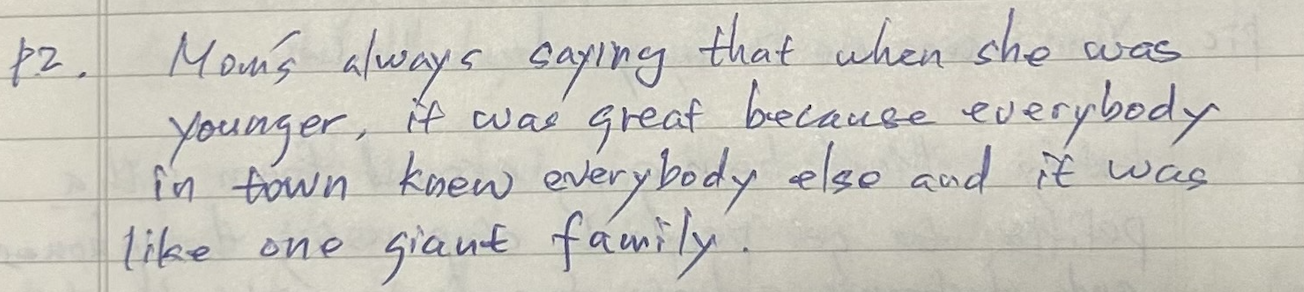 P2. Mom's always saying that when she was
younger, it was great because everybody
in town knew everybody else and it was
like one giant family.